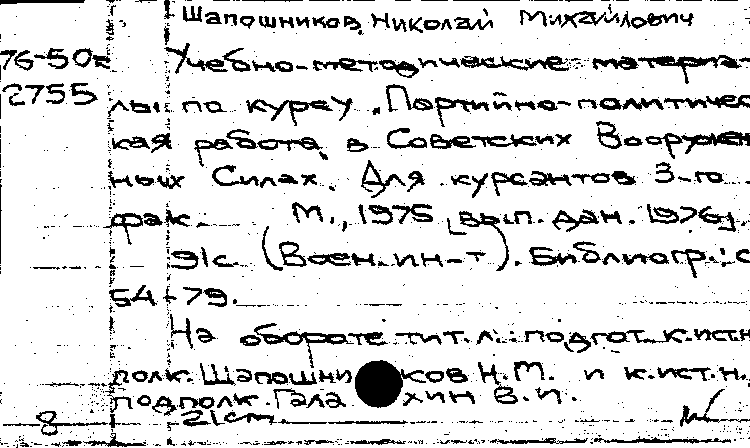 Шапошников, Николай Михайлович
76-50
2755
Учебно-методические материа-
лы по курсу „Партийно-политичес
кая работа в Советских Вооружен
ных Силах. Для курсантов 3-го
фак. М., 1975 [вып. дан. 1976].
91с. (Воен. ин-т). Библиогр.: с
54-79.
На обороте тит. л.: подгот. к.ист.н
полк. Шапошни ков Н.М. и к.ист.н.
подполк. Гала хин В.И.
8 21cm.